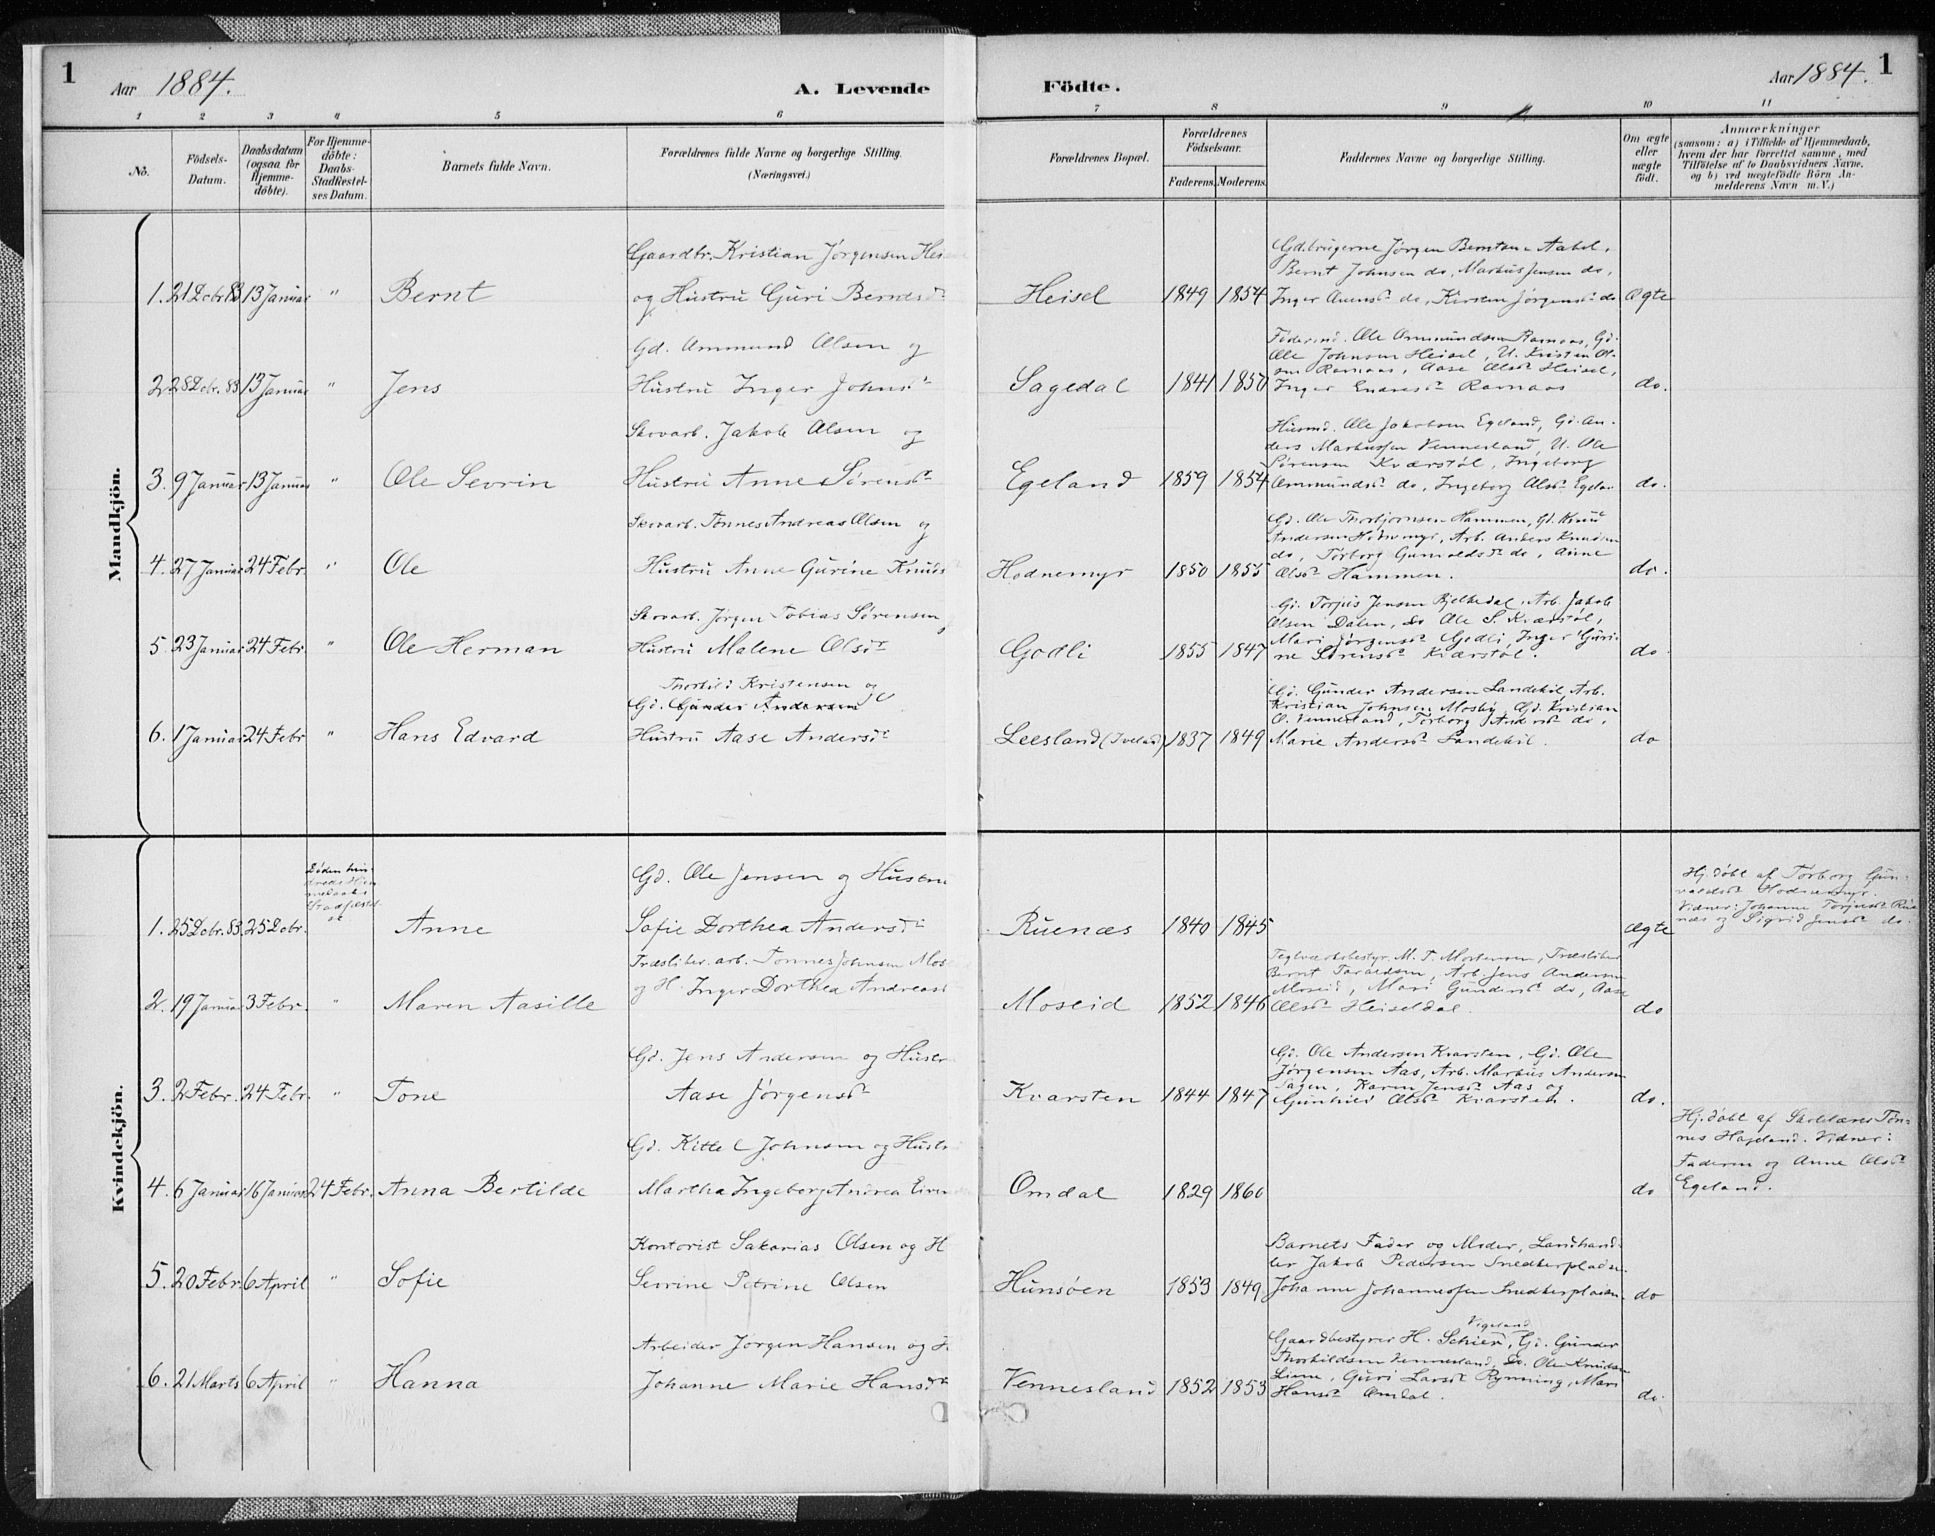 1
Aar 1884.
A. Levende
Födte.
Aar 1884.
1
1 2 3 4 5 6 7 8 9 10 11
No.
Födsels-
Datum.
Daabsdatum
(ogsaa for
Hjemme-
döbte).
For Hjemme-
döbte:
Daabs-
Stadfæstel-
ses Datum.
Barnets fulde Navn.
Forældrenes fulde Navne og borgerlige Stilling.
(Næringsvei.)
Forældrenes Bopæl.
Forældrenes
Födselsaar.
Faderens. Moderens.
Faddernes Navne og borgerlige Stilling.
Om ægte
eller
uægte
födt.
Anmærkninger
(saasom: a) i Tilfælde af Hjemmedaab,
hvem der har forrettet samme, med
Tilföielse af to Daabsvidners Navne,
og b) ved uægtefödte Börn An-
melderens Navn m. V.)
Mandkjön.
Gaardbr. Kristian Jörgensen
1. 21 Dcbr 83 13 Januar " Bernt og Hustru Guri Berntsdr
Heisel 1849 1854
Gd.brugerne Jörgen Berntsen Aabel,
Bernt Johnsen do, Markus Jensen do,
Inger do, Kirsten Jörgensdr do
Ægte
Gd. Ammund Olsen og
2. 28 Dcbr. 83 13 Januar " Jens Hustru Inger Johnsdr
Sagedal 1841 1850
Föderaad. Ole Ommundsen Ramaas, Gd.
Ole Johnsen Heisel, U. Kristen Ol-
sen Ramaas, Aase Olsdr Heisel,
Inger Ramaas
do.
Skovarb. Jakob Olsen og
3. 9 Januar 13 Januar " Ole Sevrin Hustru Anne Sörensdr
Egeland 1859 1854
Husmd. Ole Jakobsen Egeland, Gd. An-
ders Markussen Vennesland, U. Ole
Sörensen Kværstöl, Ingeborg
Ommundsdr do, Ingeborg Olsdr
do.
Skovarb. Tönnes Andreas Olsen og
4. 27 Januar 24 Febr. " Ole Hustru Anne Gurine
Hodnemyr 1850 1855
Gd. Ole Thorbjörnsen Hammen, Gd. Knud
Andersen Hodnemyr, Arb. Anders Knudsen
do, Torborg Gunvaldsdr do, Anne
Olsdr Hammen.
do.
Skovarb. Jörgen Tobias Sörensen
5. 23 Januar 24 Febr. " Ole Herman Hustru Malene Olsdr
Godli 1855 1847
Gd. Torjus Jensen Bjelkedal, Arb. Jakob
Olsen Dalen, do Ole S. Kværstöl,
Mari Jörgensdr Godli, Inger Guri-
ne Sörensdr Kværstöl.
do
Thorkild Kristensen og
Gd. Gunder Andersen
6. 1 Januar 24 Febr " Hans Edvard Hustru Aase Andersdr
Leesland (Iveland) 1837 1849
Gd. Gunder Andersen Landekil, Arb.
Kristian Johnsen Mosby, Gd. Kristian
O. Vennesland, Torborg Andersdr do,
Marie Andersdr Landekil.
do
Kvindekjön.
Döden hin-
drede Hjem-
medaabs
Stadfæstel-
se
Gd. Ole Jensen og Hustru
1. 25 Dcbr. 83 25 Dcbr. Anne Sofie Dorthea Andersdr
Ruenæs 1840 1845
Ægte
Hj. döbt af Torborg Gun-
valdsdr Hodnemyr.
Vidner: Johanne Torjusdr
næs og Sigrid Jensdr do.
Træsliber. arb. Tönnes Johnsen
2. 19 Januar 3 Febr. " Maren Aasille og H. Inger Dorthea
Moseid 1852 1846
Teglværksbestyr. M. T. Mortensen, Træsliber
Bernt Taraldsen, Arb. Jens Andersen
Moseid, Mari Gundersdr do, Aase
Olsdr Heiseldal.
do
Gd. Jens Andersen og
3. 2 Febr. 24 Febr. " Tone Aase Jörgensdr
Kvarsten 1844 1847
Gd. Ole Andersen Kvarsten, Gd. Ole
Jörgensen Aas, Arb. Markus Andersen
Sagen, Karen Jensdr Aas og
Gunhild Olsdr Kvarsten.
do.
Gd. Kittel Johnsen og
4. 6 Januar 16 Januar 24 Febr. Anna Bertilde Martha Ingeborg Andrea
Omdal 1829 1860
do
Hj. döbt af Skolelærer Tön-
nes Hageland. Vidner:
Faderen og Anne Olsdr
Egeland.
Kontorist Sakarias Olsen og H
5. 20 Febr. 6 April " Sofie Sevrine Petrine Olsen
Hunsöen 1853 1849
Barnets Fader og Moder, Landhand-
ler Jakob Pedersen Snedkerpladsen
Johanne Johannessen Snedkerpladsen
do
Arbeider Jörgen Hansen og H
6. 21 Marts 6 April " Hanna Johanne Marie Hansdr
Vennesland 1852 1853
Vigeland
Gaardbestyrer H. Schier, Gd. Gunder
Thorkildsen Vennesland, Do. Ole Knudsen
Liene, Guri Larsdr Rynning, Mari
Hansdr Omdal.
do.